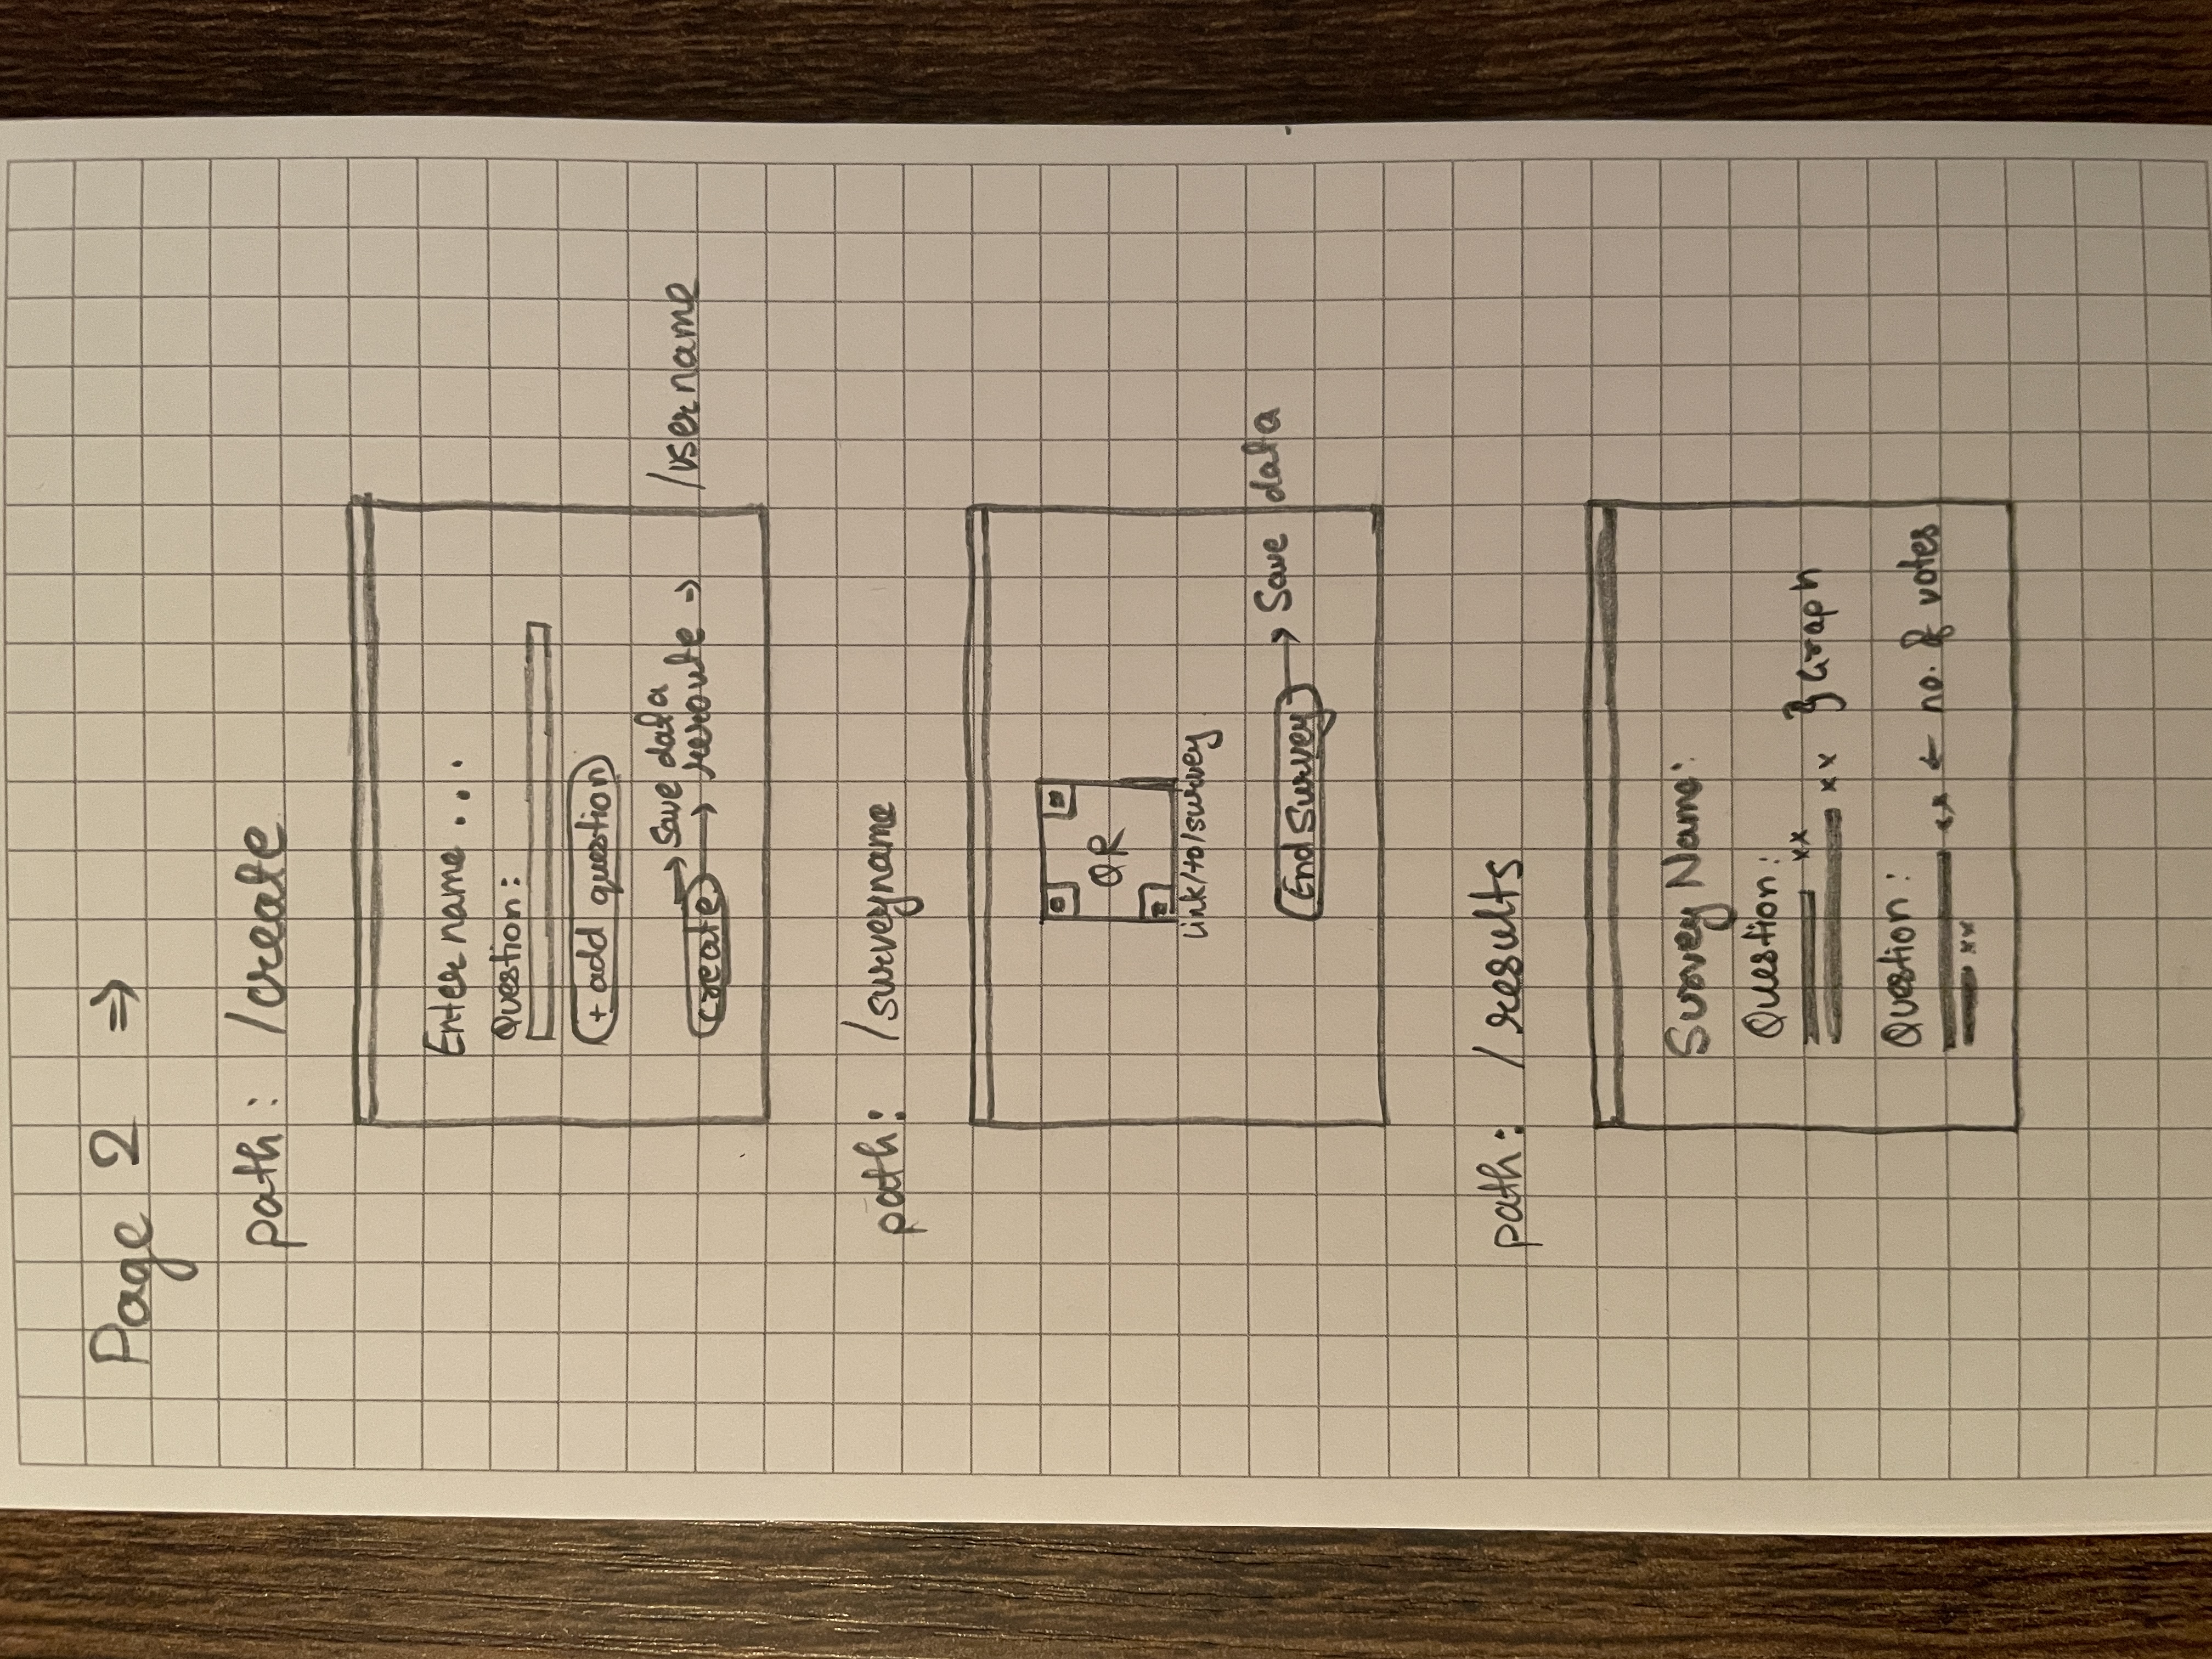 Page 2 ⇒
path: /create
Enter name ...
Question:
+ add question
→ Save data
create → reroute → /username
path: /surveyname
QR
Link/to/survey
End Survey → Save data
path: /results
Survey Name:
Question:
xx
xx } Graph
Question:
xx ← no. of votes
xx